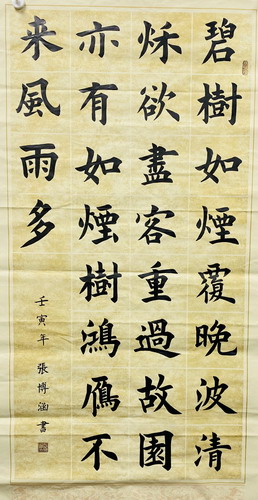 碧樹如煙覆晚波清
秌欲盡客重過故園
亦有如煙樹鴻鴈不
来風雨多
壬寅年 張博涵書